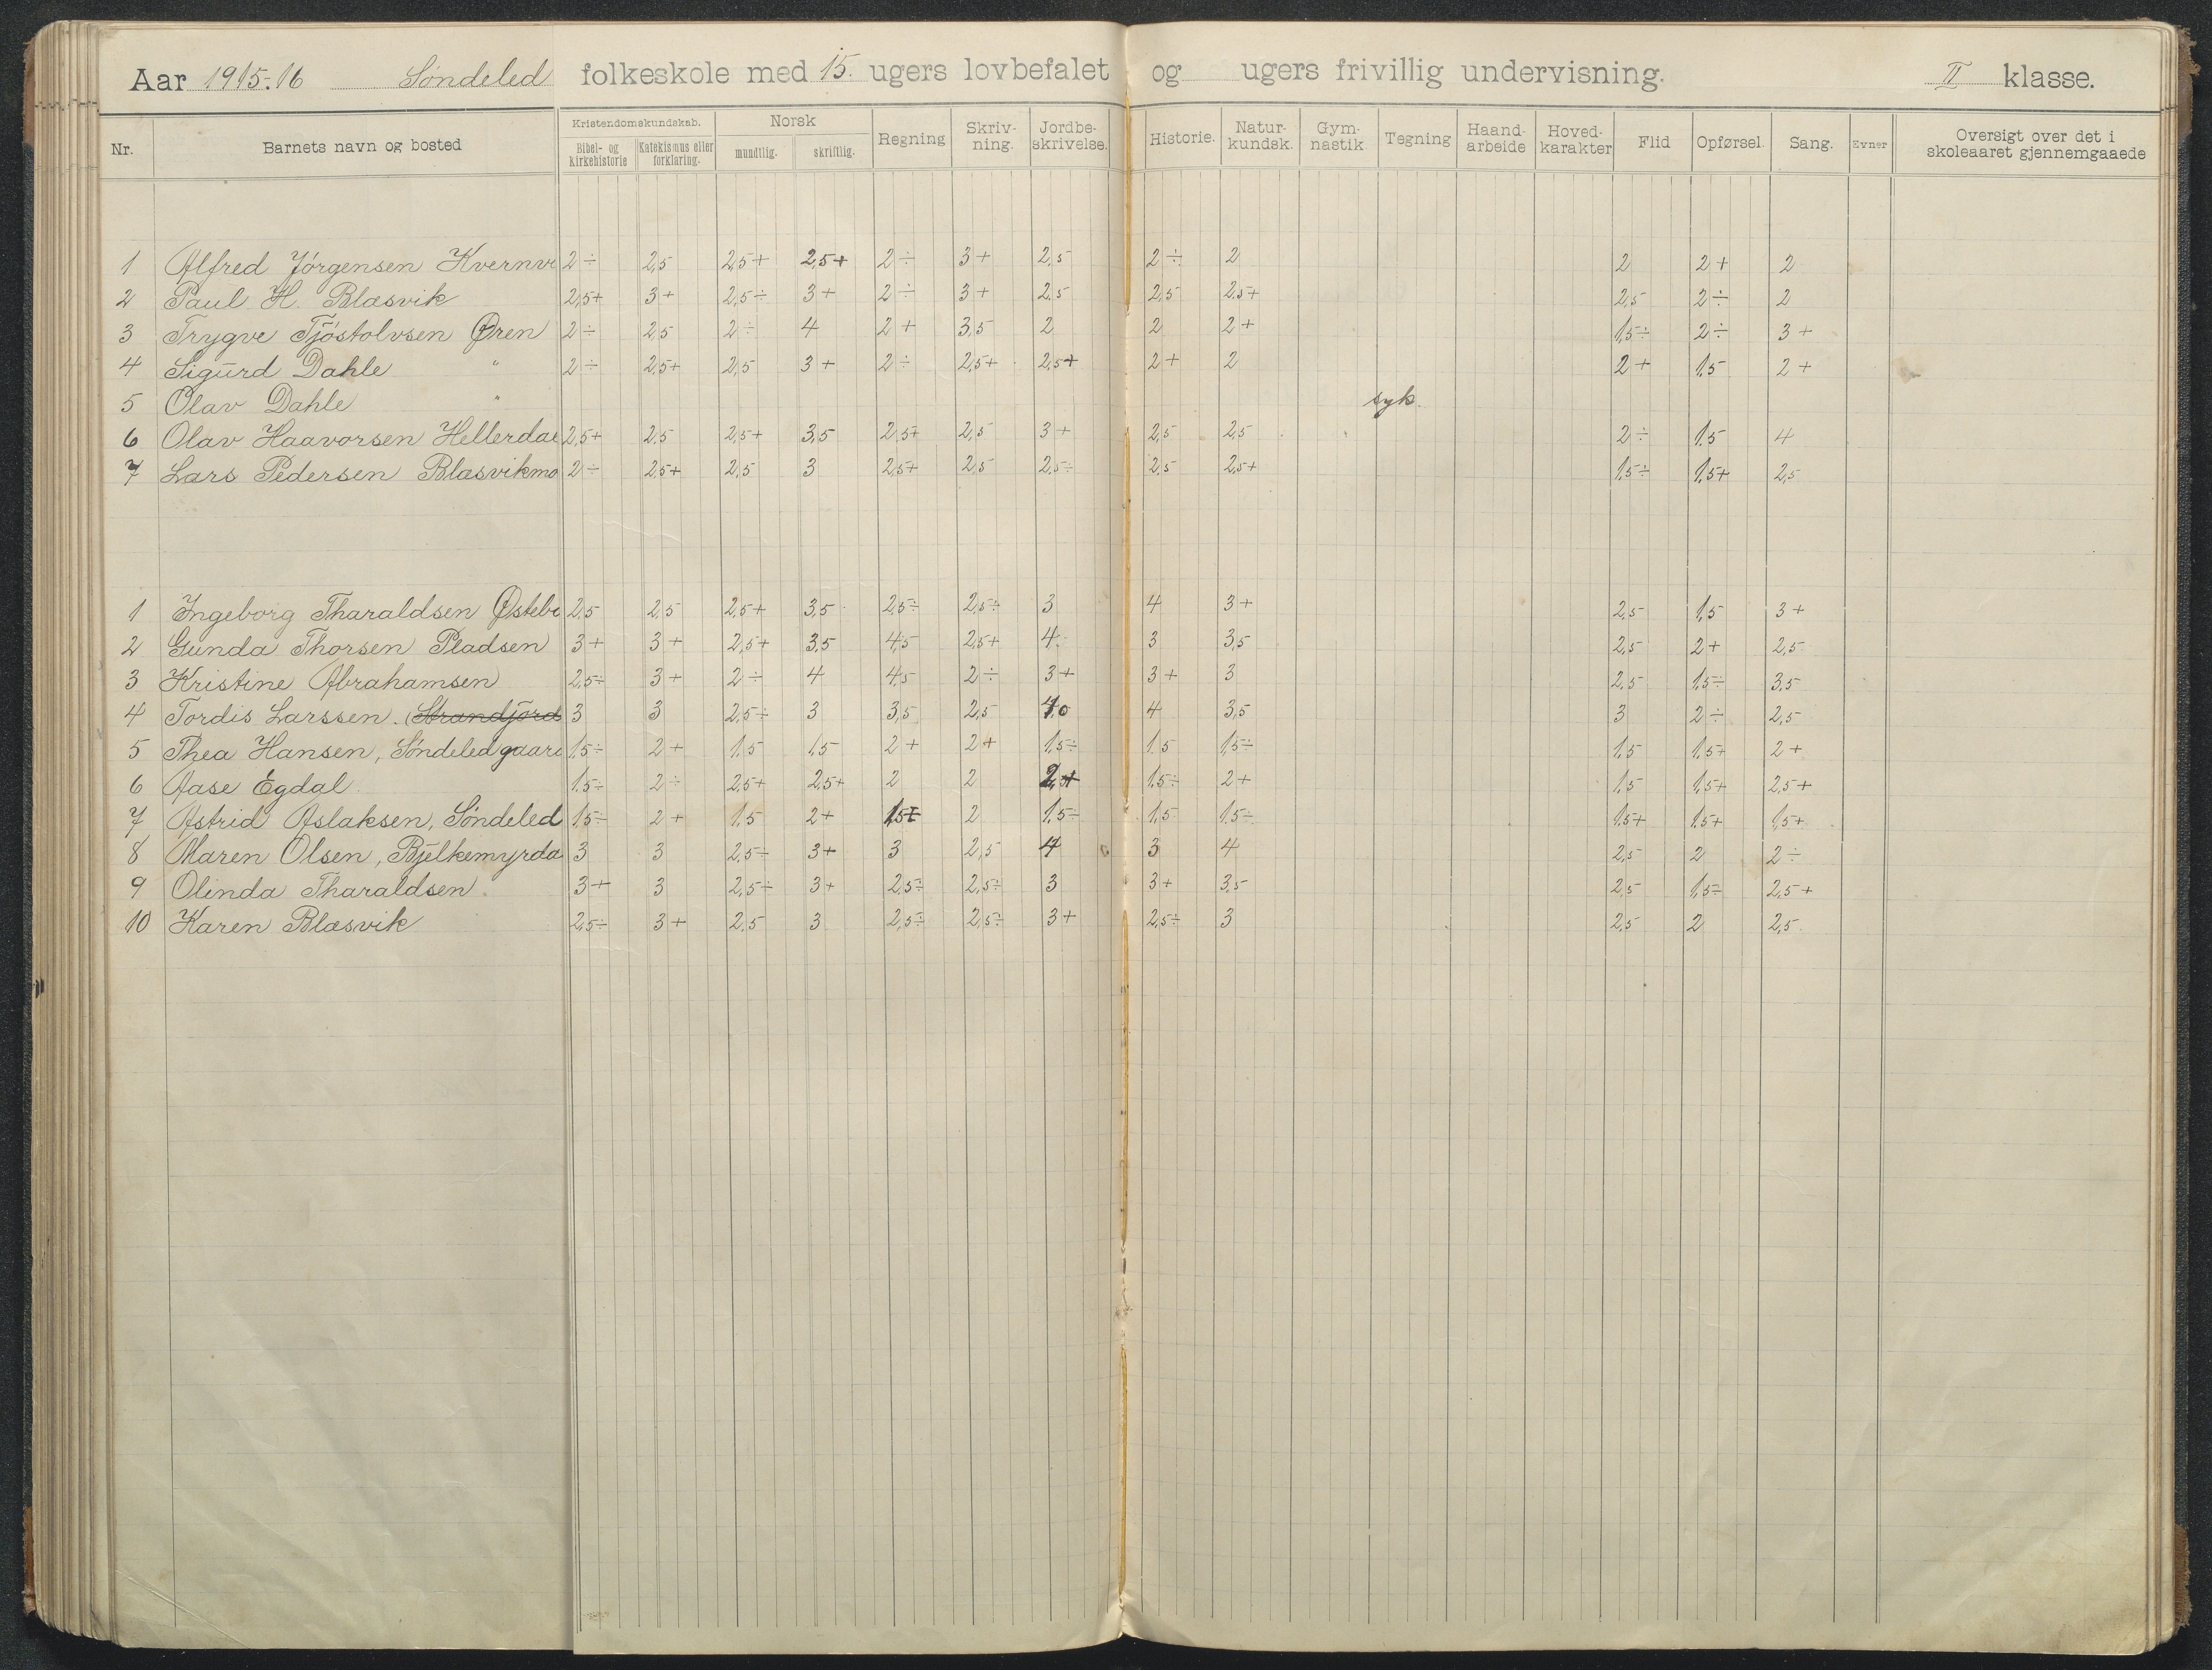 Aar 1915-16 Søndeled folkeskole med 15. ugers lovbefalet og ugers frivillig undervisning. II klasse.
Nr. Barnets navn og bosted Kristendomskundskab. Bibel- og kirkehistorie Katekismus eller forklaring. Norsk mundtlig. skriftlig. Regning Skriv-ning. Jordbe-skrivelse. Historie. Natur-kundsk. Gym-nastik Tegning Haand-arbeide Hoved-karakter Flid Opførsel. Sang. Evner Oversigt over det i skoleaaret gjennemgaaede
1 Alfred Jörgensen Kvernvi 2÷ 2,5 2,5+ 2,5+ 2÷ 3+ 2,5 2÷ 2 2 2+ 2
2 Paul H. Blæsvik 2,5+ 3+ 2,5÷ 3+ 2÷ 3+ 2,5 2,5 2,5+ 2,5 2÷ 2
3 Trygve Tjöstolvsen Øren 2÷ 2,5 2÷ 4 2+ 3,5 2 2 2+ 1,5÷ 2÷ 3+
4 Sigurd Dahle " 2÷ 2,5+ 2,5 3+ 2÷ 2,5+ 2,5+ 2+ 2 2+ 1,5 2+
5 Olav Dahle " syk.
6 Olav Haavorsen Hellerdal 2,5+ 2,5 2,5+ 3,5 2,5+ 2,5 3+ 2,5 2,5 2÷ 1,5 4
7 Lars Pedersen Blæsvikmo 2÷ 2,5+ 2,5 3 2,5+ 2,5 2,5÷ 2,5 2,5+ 1,5÷ 1,5+ 2,5
1 Ingeborg Tharaldsen Østebø 2,5 2,5 2,5+ 3,5 2,5÷ 2,5÷ 3 4 3+ 2,5 1,5 3+
2 Gunda Thorsen Pladsen 3+ 3+ 2,5+ 3,5 4,5 2,5+ 4 3 3,5 2,5 2+ 2,5
3 Kristine Abrahamsen 2,5÷ 3+ 2÷ 4 4,5 2÷ 3+ 3+ 3 2,5 1,5÷ 3,5
4 Tordis Larssen. (Strandjord 3 3 2,5÷ 3 3,5 2,5 4,0 4 3,5 3 2÷ 2,5
5 Thea Hansen, Söndeledgaard 1,5÷ 2+ 1,5 1,5 2+ 2+ 1,5÷ 1,5 1,5÷ 1,5 1,5÷ 2+
6 Aase Egdal. 1,5÷ 2÷ 2,5+ 2,5+ 2 2 2+ 1,5÷ 2+ 1,5 1,5+ 2,5+
7 Astrid Aslaksen, Söndeled 1,5÷ 2+ 1,5 2+ 1,5+ 2 1,5÷ 1,5 1,5÷ 1,5+ 1,5+ 1,5+
8 Maren Olsen, Bjelkemyrda 3 3 2,5÷ 3+ 3 2,5 4 3 4 2,5 2 2÷
9 Olinda Tharaldsen. 3+ 3 2,5÷ 3+ 2,5÷ 2,5÷ 3 3+ 3,5 2,5 1,5÷ 2,5+
10 Karen Blæsvik 2,5÷ 3+ 2,5 3 2,5÷ 2,5÷ 3+ 2,5÷ 3 2,5 2 2,5